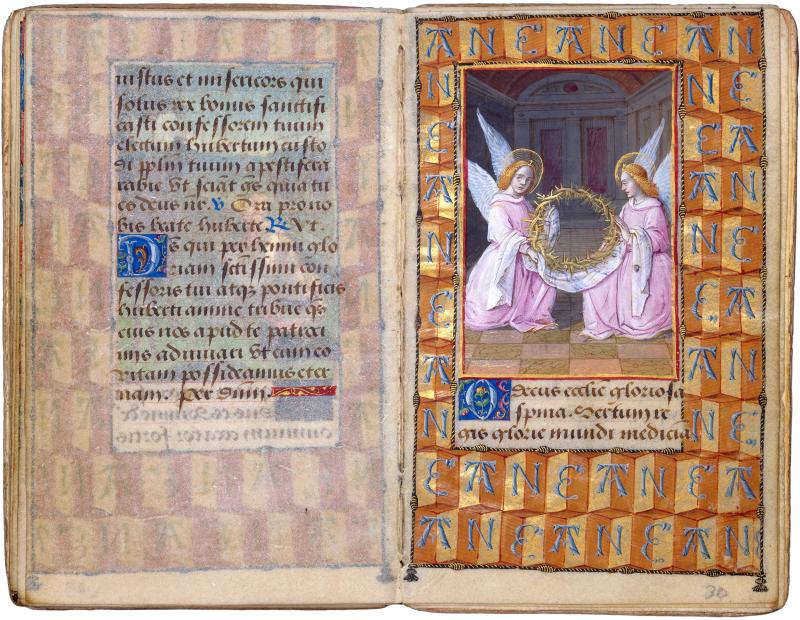 iustus et misericors qui
solus rex bonus sanctifi
casti confessorem tuum
electum hubertum custo
di pplm tuum a pestifera
rabie vt sciat gs quia tu
es deus nr. v Ora pro no
bis beate huberte R Vt.
Ds qui per glo
riam sctissimi con
fessoris tui atqꝫ pontificis
huberti anime tribue qs
eius nos apud te patroci
niis adiuvari vt
vitam possideamus eter
nam. per dnm.
A N E A N E A N
N N E
E E A
A A N
N N E
E E A
A A N
N N E
E A N E A N E A
A N E A N E A N
O decus ecclie gloriosa
spina. Sertum re
gis glorie mundi medicia
30